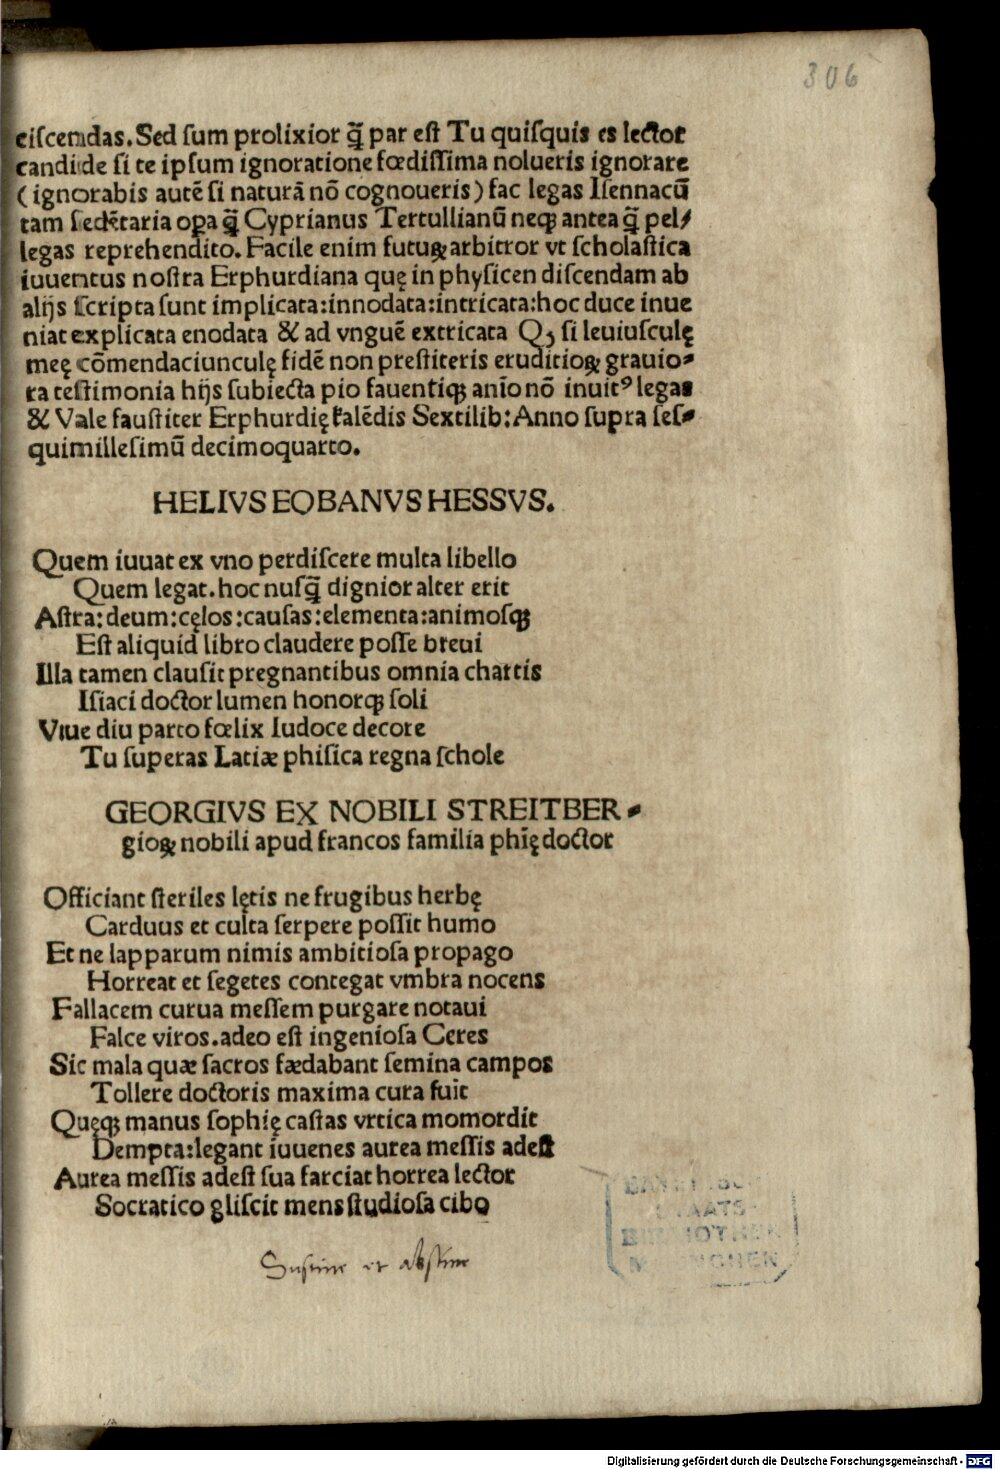 306
ciſcendas. Sed ſum prolixior q̄ par eſt Tu quiſquis es lector
candide ſi te ipſum ignoratione fœdiſſima nolueris ignorare
(ignorabis autē ſi naturā nō cognoueris) fac legas Iſennacū
tam ſedētaria oꝑa q̄ Cyprianus Tertullianū neqꝫ antea q̄ pel/
legas reprehendito. Facile enim futuꝝ arbitror vt ſcholaſtica
iuuentus noſtra Erphurdiana quę in phyſicen diſcendam ab
alijs ſcripta ſunt implicata: innodata: intricata: hoc duce inue
niat explicata enodata & ad vnguē extricata Qꝫ ſi leuiuſculę
meę cōmendaciunculę fidē non preſtiteris eruditioꝝ grauio-
ra teſtimonia hijs ſubiecta pio fauentiqꝫ anīo nō inuitꝰ legas
& Vale fauſtiter Erphurdię kalēdis Sextilib: Anno ſupra ſeſ-
quimilleſimū decimoquarto.
HELIVS EOBANVS HESSVS.
Quem iuuat ex vno perdiſcere multa libello
Quem legat. hoc nuſq̄ dignior alter erit
Aſtra: deum: cęlos: cauſas: elementa: animoſqꝫ
Eſt aliquid libro claudere poſſe breui
Illa tamen clauſit pregnantibus omnia chartis
Iſiaci doctor lumen honorqꝫ ſoli
Viue diu parto fœlix Iudoce decore
Tu ſuperas Latiæ phiſica regna ſchole
GEORGIVS EX NOBILI STREITBER-
gioꝝ nobili apud francos familia phīę doctor
Officiant ſteriles lętis ne frugibus herbę
Carduus et culta ſerpere poſſit humo
Et ne lapparum nimis ambitioſa propago
Horreat et ſegetes contegat vmbra nocens
Fallacem curua meſſem purgare notaui
Falce viros. adeo eſt ingenioſa Ceres
Sic mala quæ ſacros fædabant ſemina campos
Tollere doctoris maxima cura fuit
Quęqꝫ manus ſophię caſtas vrtica momordit
Dempta: legant iuuenes aurea meſſis adeſt
Aurea meſſis adeſt ſua farciat horrea lector
Socratico gliſcit mens ſtudioſa cibo
Sustine et abstine
STAATS-
BIBLIOTHEK
MUENCHEN
Digitalisierung gefördert durch die Deutsche Forschungsgemeinschaft - DFG